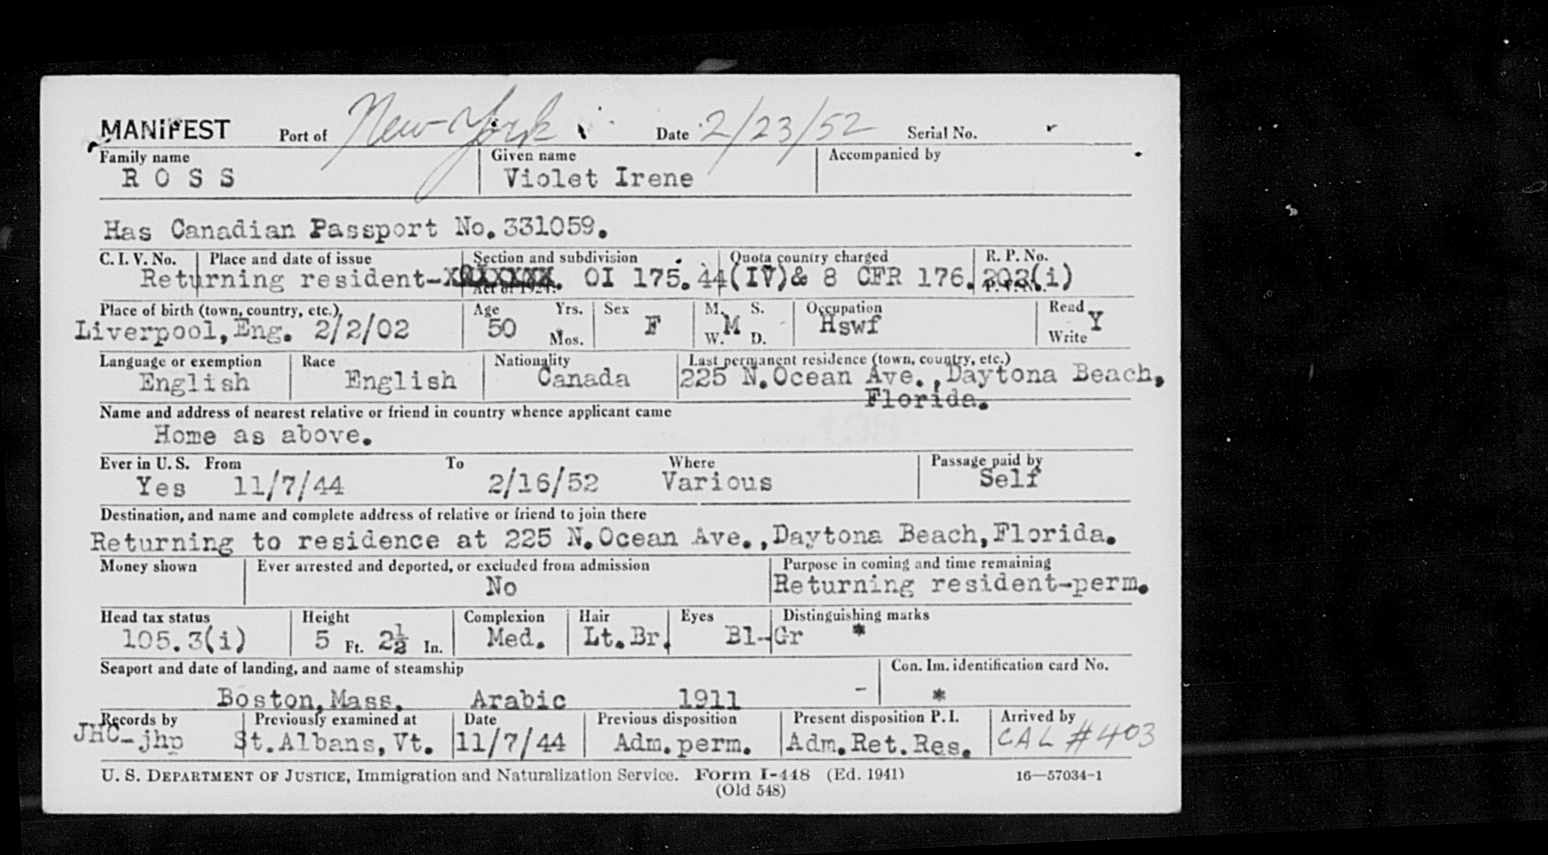 MANIFEST Port of New York Date 2/23/52 Serial No.
Family name Given name Accompanied by
R O S S Violet Irene
Has Canadian Passport No. 331059.
C. I. V. No. Place and date of issue Section and subdivision Quota country charged R. P. No.
Returning resident-XXXXXXX. OI 175.44(IV)& 8 CFR 176.203(i)
Act of 1924.
Place of birth (town, country, etc.) Age Yrs. Sex M. S. Occupation Read
Liverpool, Eng. 2/2/02 50 F M Hswf Y
Mos. W. D. Write
Language or exemption Race Nationality Last permanent residence (town, country, etc.)
English English Canada 225 N.Ocean Ave., Daytona Beach,
Florida.
Name and address of nearest relative or friend in country whence applicant came
Home as above.
Ever in U. S. From To Where Passage paid by
Yes 11/7/44 2/16/52 Various Self
Destination, and name and complete address of relative or friend to join there
Returning to residence at 225 N.Ocean Ave., Daytona Beach, Florida.
Money shown Ever arrested and deported, or excluded from admission Purpose in coming and time remaining
No Returning resident-perm.
Head tax status Height Complexion Hair Eyes Distinguishing marks
105.3(i) 5 Ft. 2½ In. Med. Lt.Br. Bl-Gr *
Seaport and date of landing, and name of steamship Con. Im. identification card No.
Boston, Mass. Arabic 1911 - *
Records by Previously examined at Date Previous disposition Present disposition P. I. Arrived by
JHC-jhp St.Albans, Vt. 11/7/44 Adm.perm. Adm.Ret.Res. CAL #403
U. S. DEPARTMENT OF JUSTICE, Immigration and Naturalization Service. Form I-448 (Ed. 1941) 16—57034-1
(Old 548)